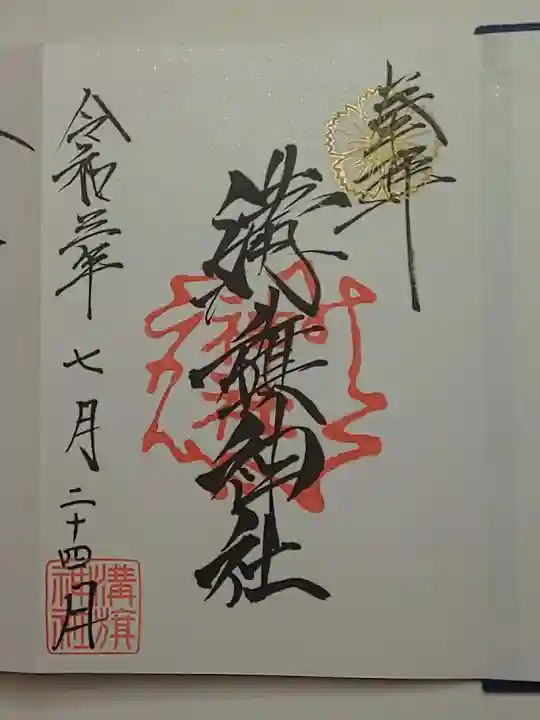 奉拝
溝旗神社
令和三年七月二十四日
溝旗
神社